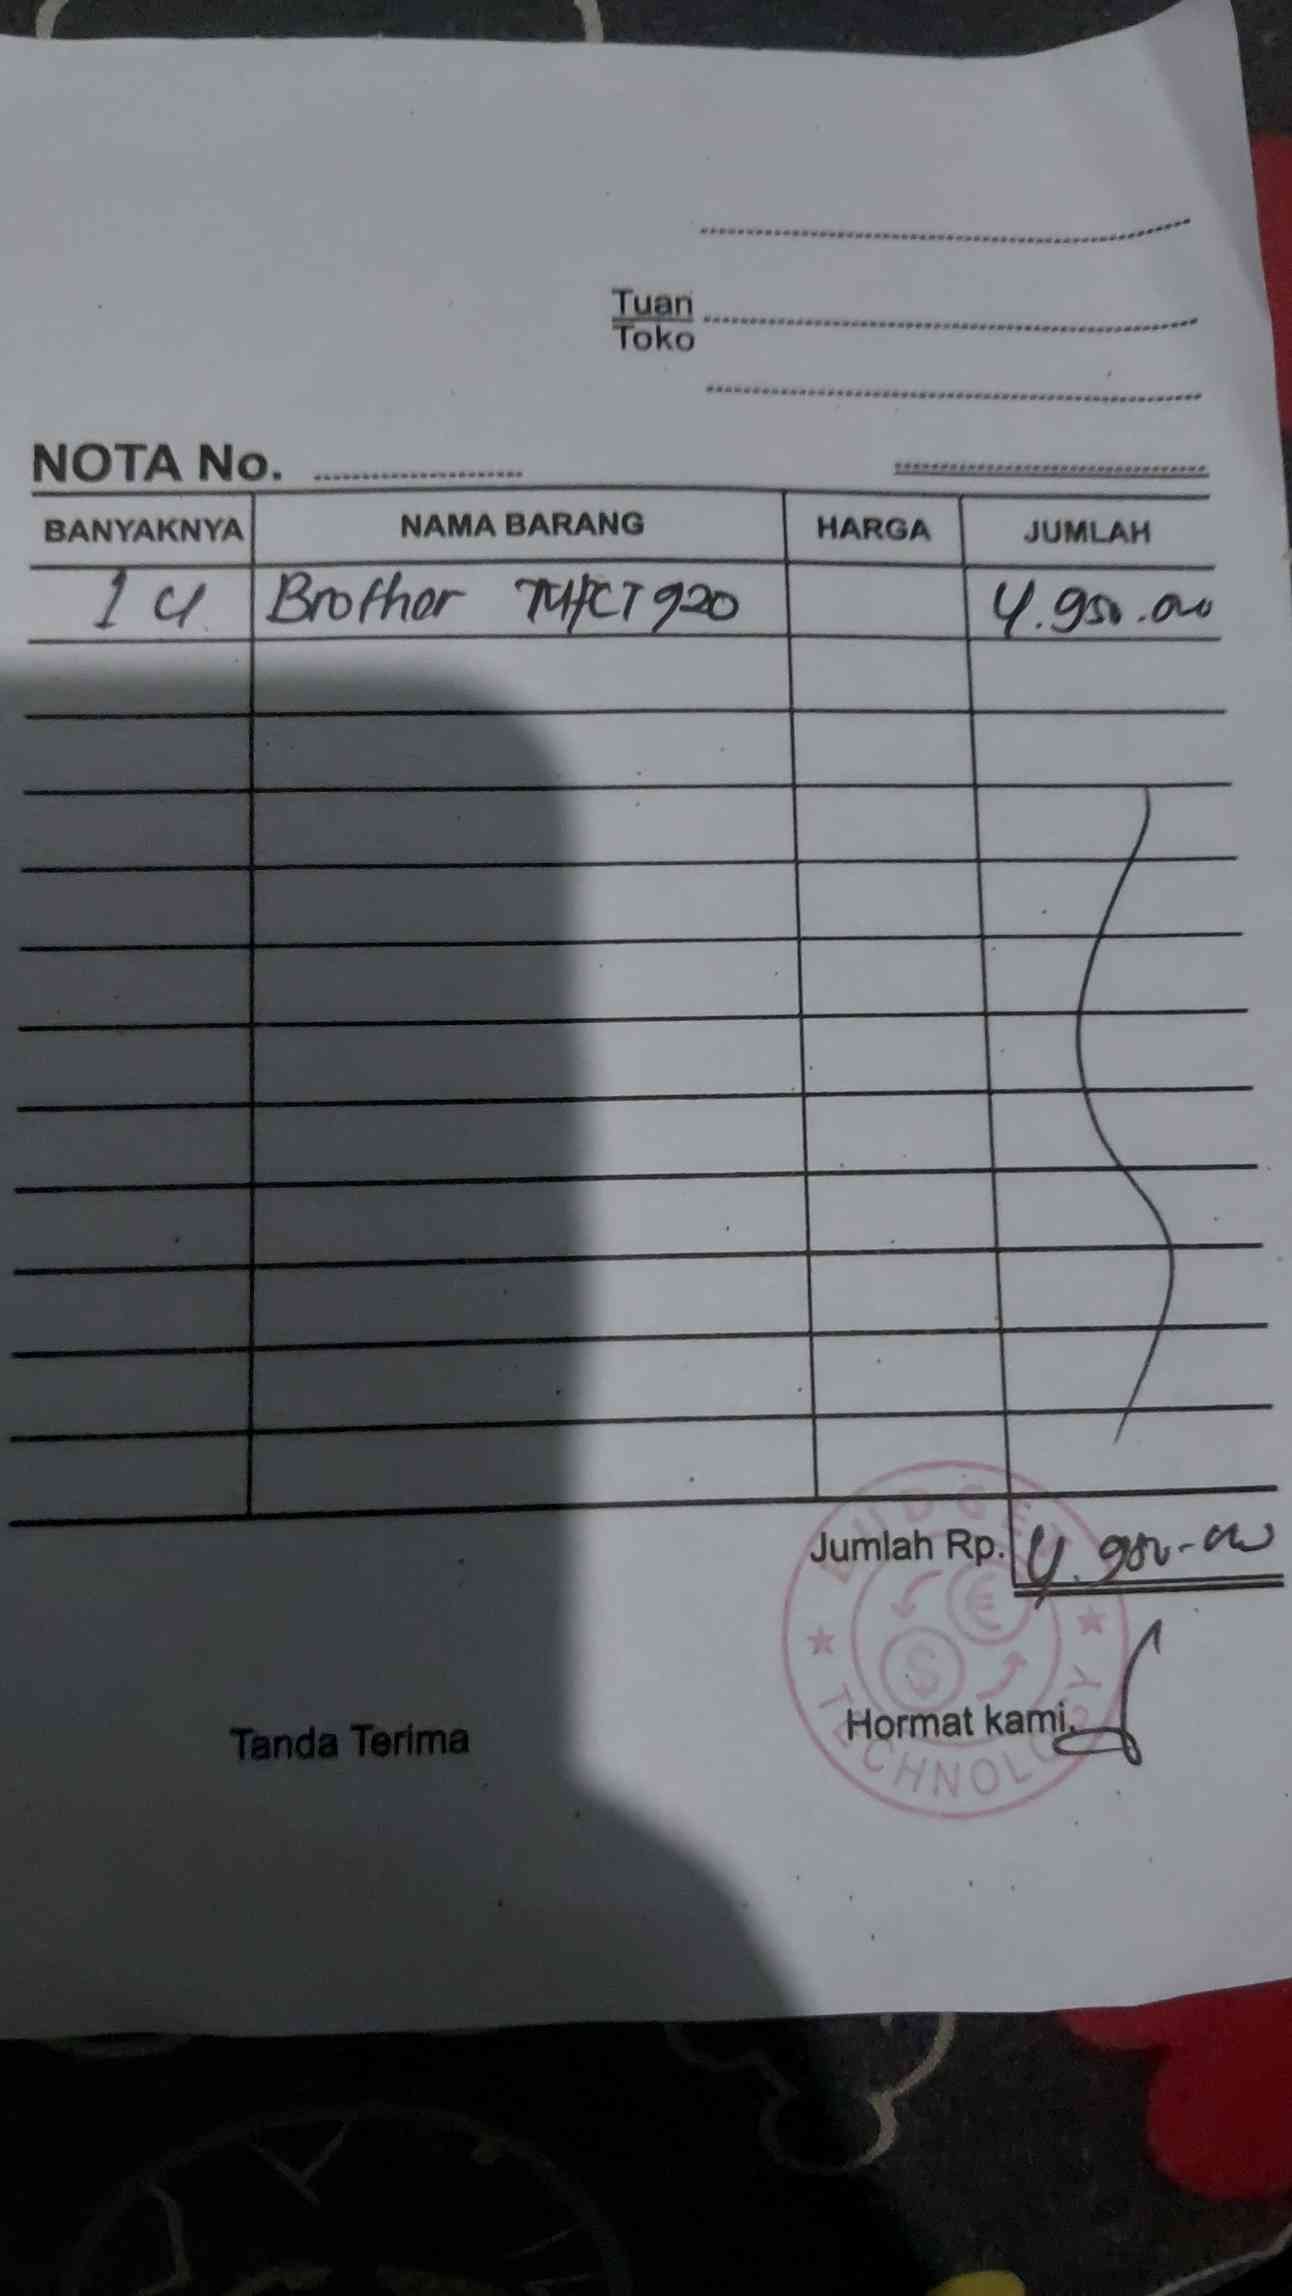 Tuan
Toko
NOTA No.
BANYAKNYA NAMA BARANG HARGA JUMLAH
1 u Brother 920 4.950.000
Jumlah Rp. 4.950.000
BUDGET TECHNOLOGY
Tanda Terima Hormat kami,